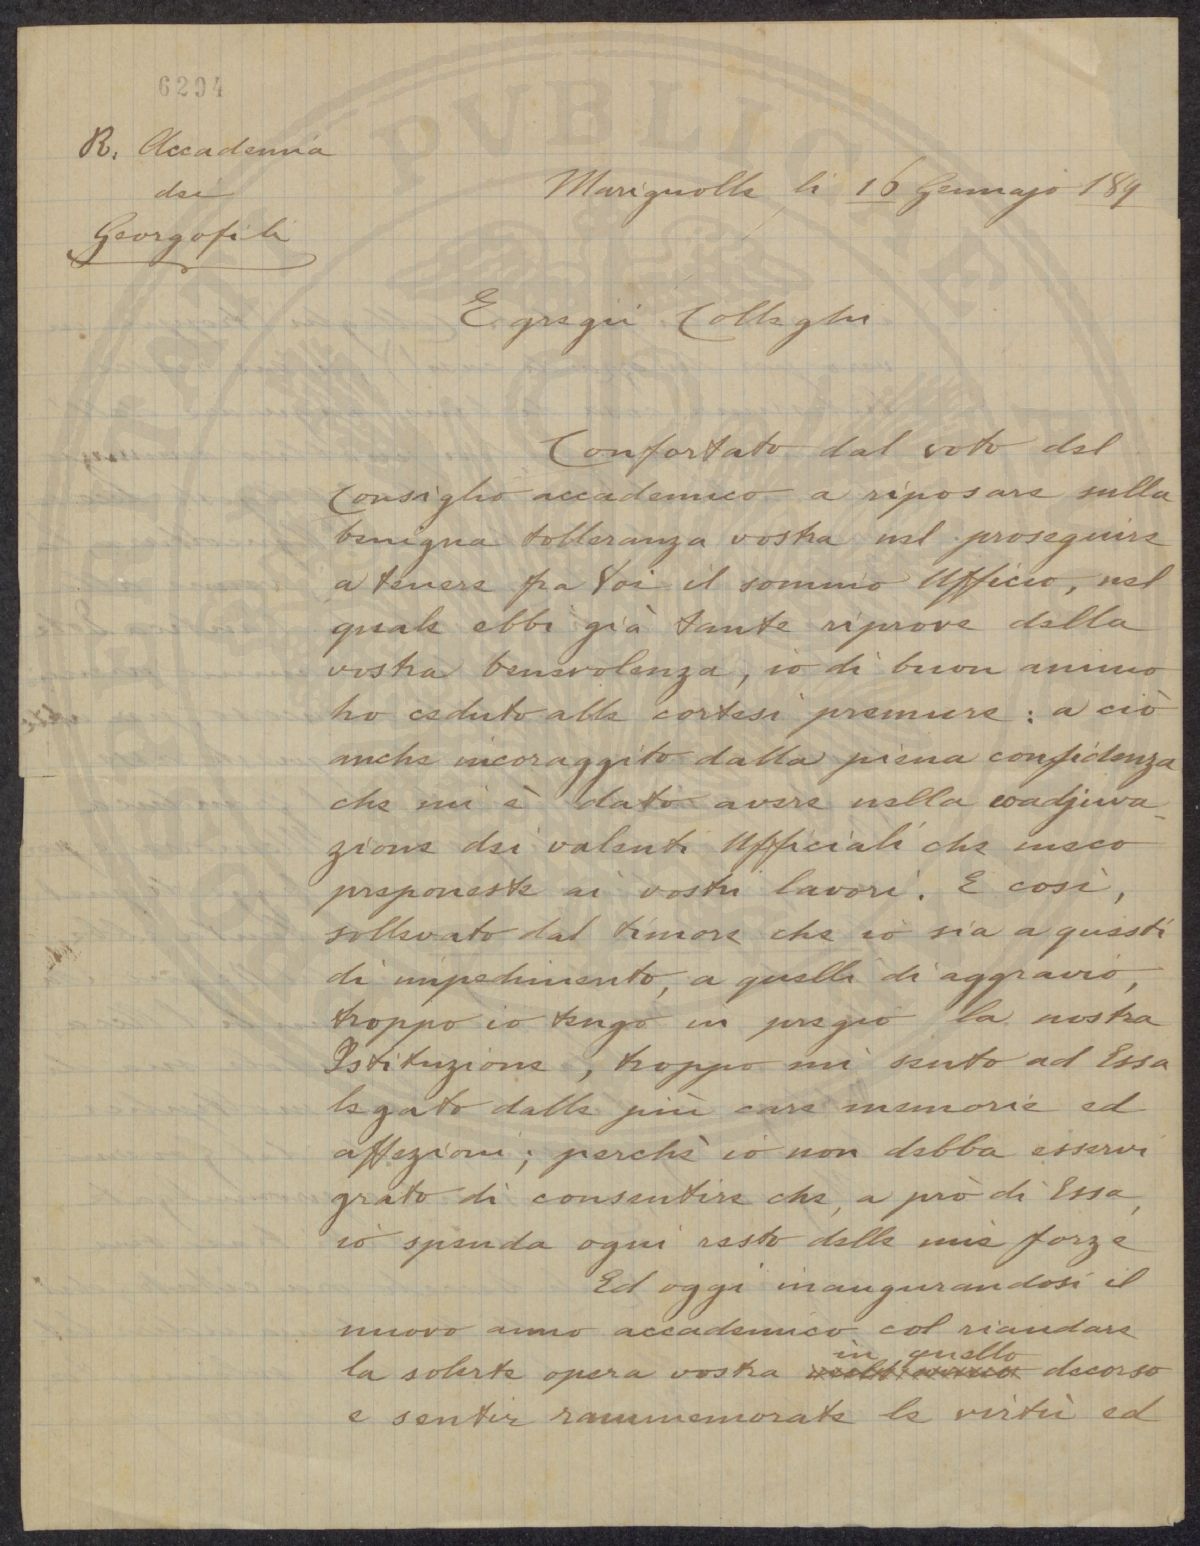 6294
R. Accademia
dei
Georgofili
Marignolle li 16 Gennajo 189
Egregii Colleghi
Confortato dal voto del
Consiglio accademico a riposare sulla
benigna tolleranza vostra nel proseguire
a tenere fra Voi il sommo Ufficio, nel
quale ebbi già tante riprove della
vostra benevolenza, io di buon animo
ho ceduto alle cortesi premure: a ciò
anche incoraggito dalla piena confidenza
che mi è dato avere nella coadjuva-
zione dei valenti Ufficiali che meco
preponeste ai vostri lavori. E così,
sollevato dal timore che io sia a questi
di impedimento, a quelli di aggravio,
troppo io tengo in pregio la nostra
Istituzione, troppo mi sento ad Essa
legato dalle più care memorie ed
affezioni; perchè io non debba esservi
grato di consentire che, a prò di Essa,
io spenda ogni resto delle mie forze
Ed oggi inaugurandosi il
nuovo anno accademico col riandare
in quello
la solerte opera vostra decorso
e sentir rammemorate le virtù ed